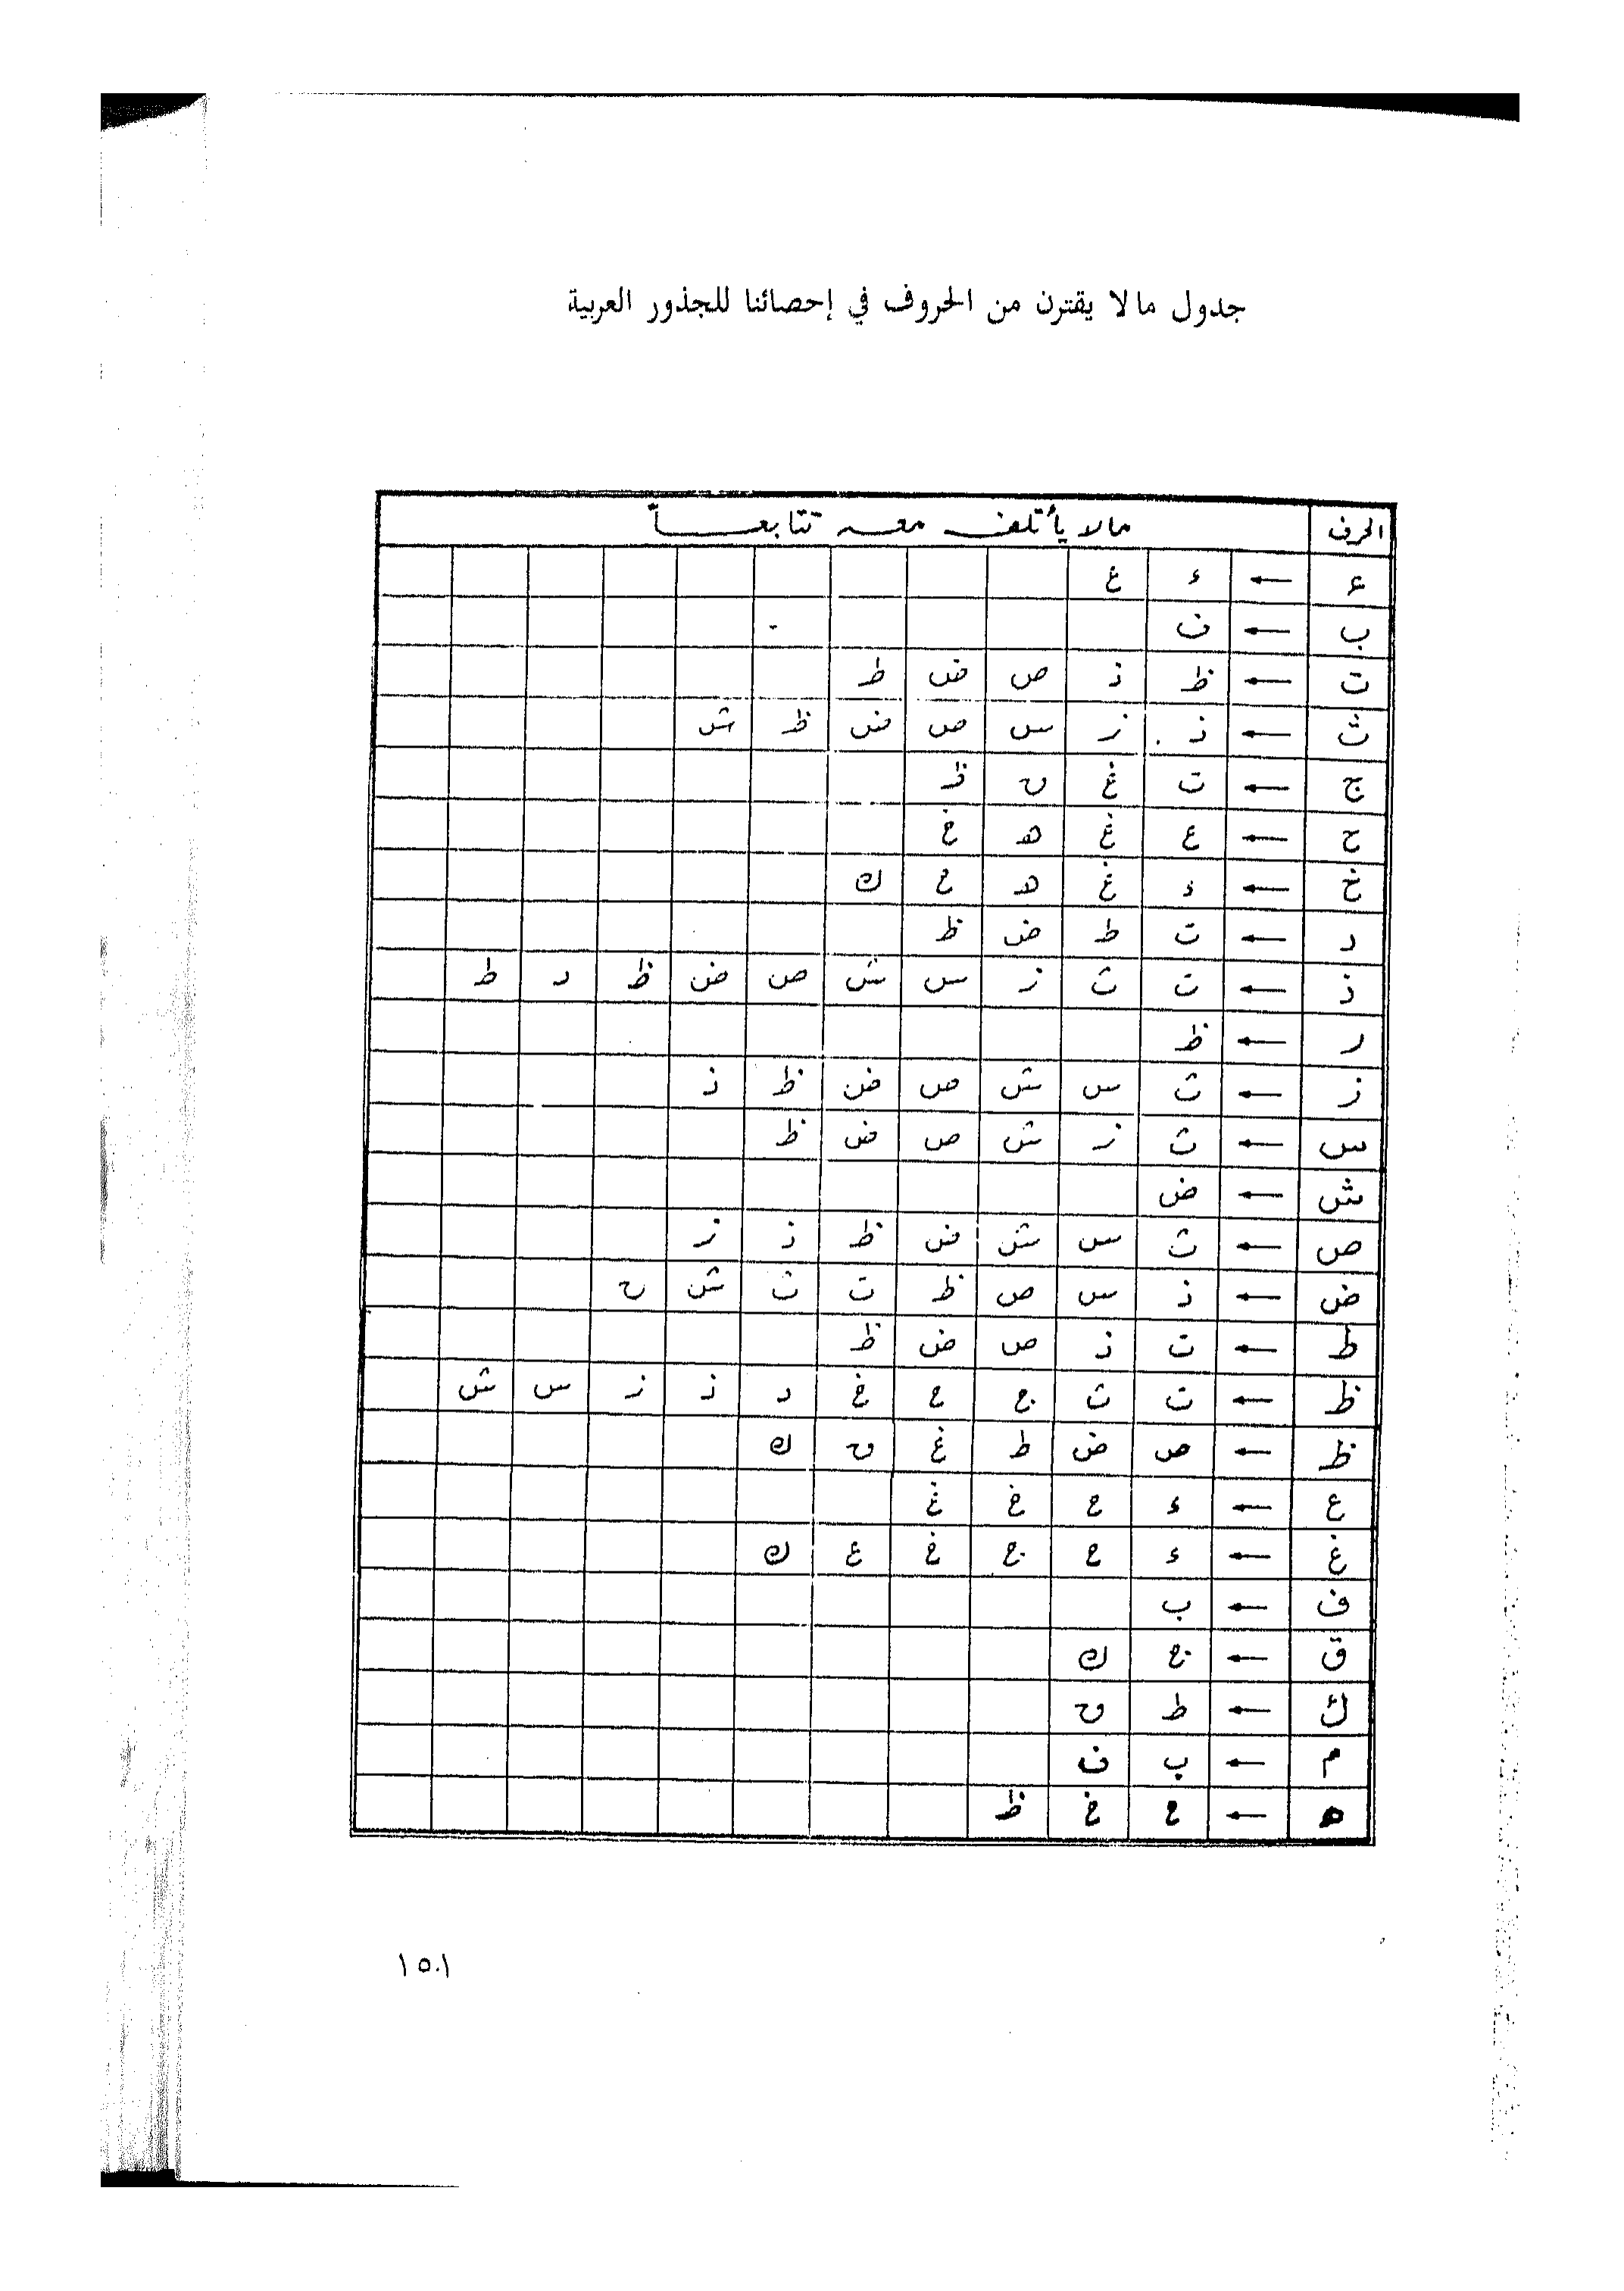 جدول مالا يقترن من الحروف في إحصائنا للجذور العربية
الحرف مالا يأتلف معه تتابعاً
ء ← ء غ
ب ← ف
ت ← ظ ذ ص ض ط
ث ← ذ ز س ص ض ظ ش
ج ← ت غ ق ظ
ح ← ع غ ه خ
خ ← ء غ ه ح ك
د ← ت ط ض ظ
ذ ← ت ث ز س ش ص ض ظ د ط
ر ← ظ
ز ← ث س ش ص ض ظ ذ
س ← ث ز ش ص ض ظ
ش ← ض
ص ← ث س ش ض ظ ذ ز
ض ← ذ س ص ظ ت ث ش ق
ط ← ت ذ ص ض ظ
ظ ← ت ث ج ح خ د ذ ز س ش
ظ ← ص ض ط غ ق ك
ع ← ء ح خ غ
غ ← ء ح ج خ ع ك
ف ← ب
ق ← ج ك
ك ← ط ق
م ← ب ف
ه ← ح خ ظ
١٥٠١